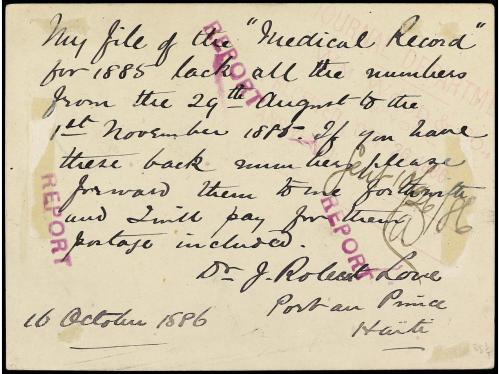 My file of the "Medical Record"
for 1885 lack all the numbers
from the 29th August to the
1st November 1885. If you have
these back numbers please
forward them to me forthwith
and I will pay for them
postage included.
Dr J. Robert Love
Port au Prince
Haïti
16 October 1886
REPORT
REPORT
REPORT
JOURNAL DEPARTME